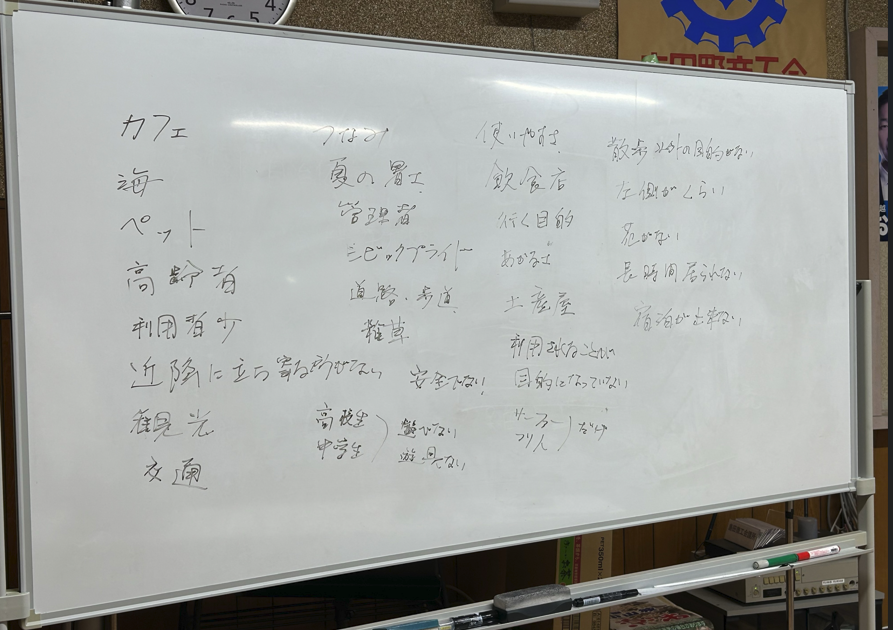 カフェ
海
ペット
高齢者
利用者少
近隣に立ち寄る所がない
観光
交通
つなみ
夏の暑さ
管理者
シビックプライド
道路・歩道
雑草
安全でない
高校生
中学生
遊べない
遊具ない
使いやすさ
飲食店
行く目的
あかるさ
土産屋
利用されることが
目的になっていない
サーファー
つり人
だけ
散歩以外の目的がない
左側がくらい
花がない
長時間居られない
宿泊が出来ない